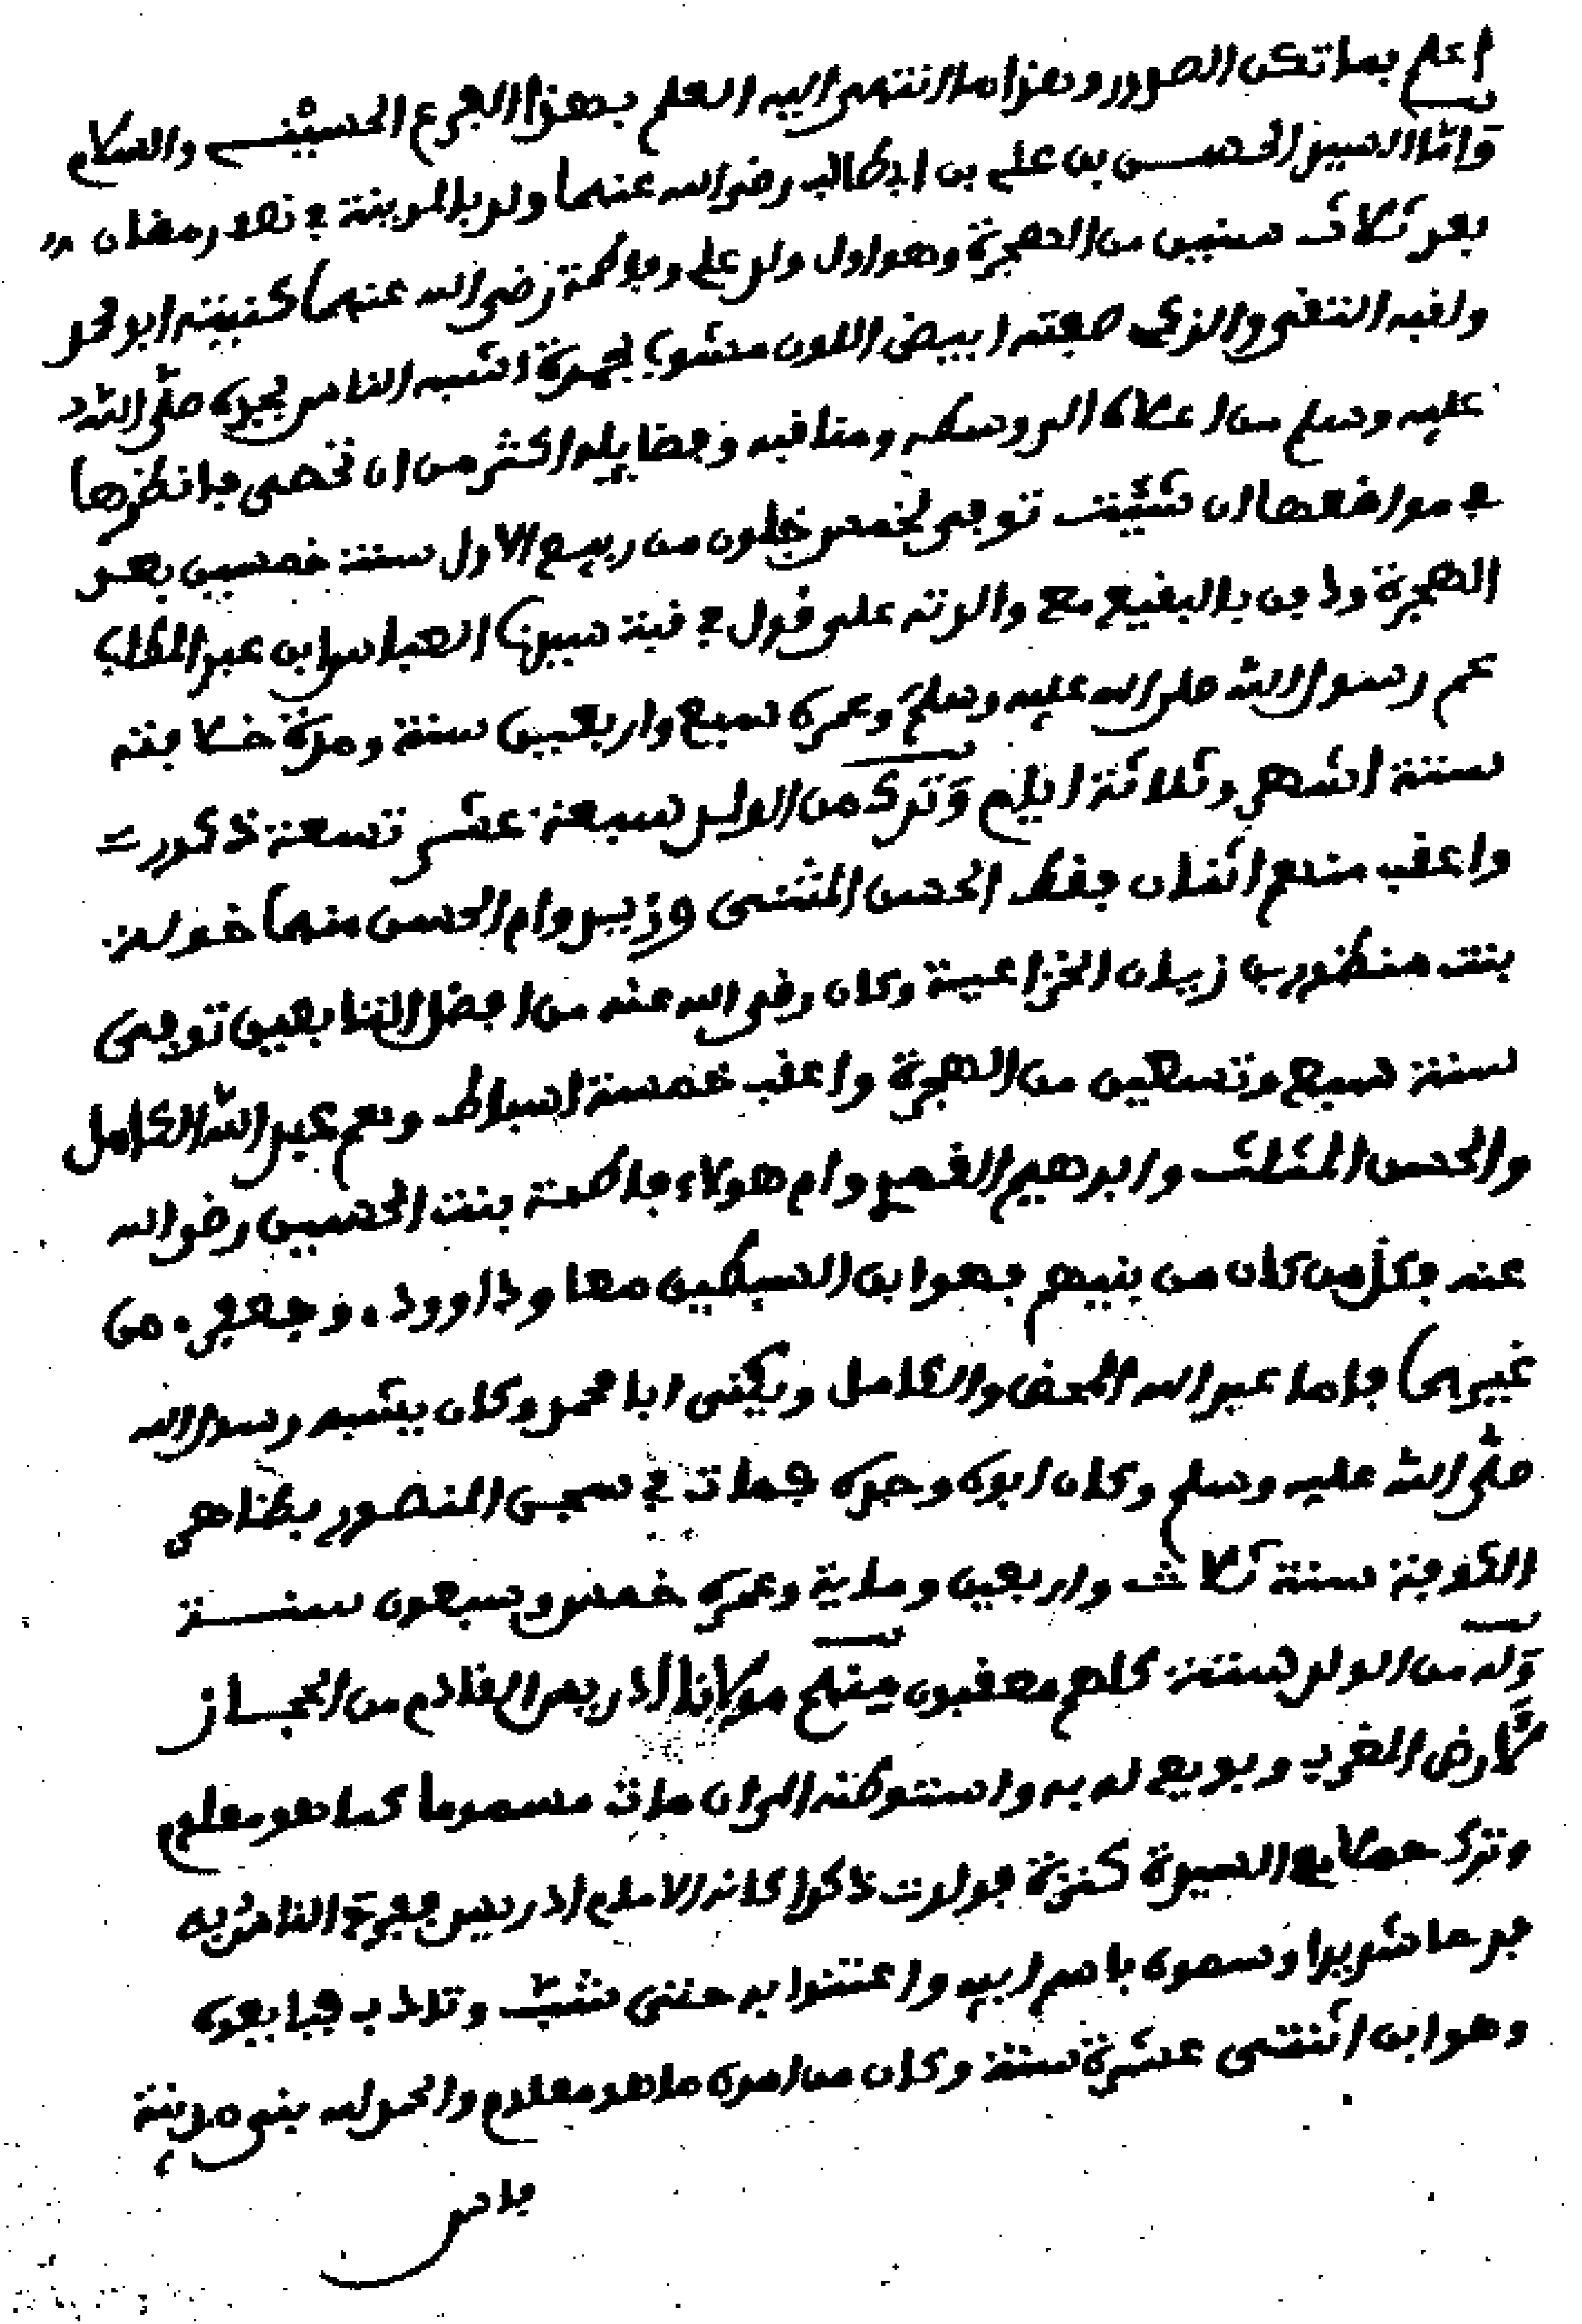 اعلم بما تكن الصدور وهذا ما انتهى اليه العلم بهذا الفرع الحسيني والسلام
واما السيد الحسن بن علي بن ابي طالب رضي الله عنهما ولد بالمدينة في نصف رمضان
بعد ثلاث سنين من الهجرة وهو اول ولد علي وفاطمة رضي الله عنهما كنيته ابو محمد
ولقبه التقي والزكي صفته ابيض اللون مشوب بحمرة اشبه الناس بجده صلى الله
عليه وسلم من اعلاه الى وسطه ومناقبه وفضايله اكثر من ان تحصى فانظرها
في مواضعها ان شئت توفي لخمس خلون من ربيع الاول سنة خمسين بعد
الهجرة ودفن بالبقيع مع والدته على قول في قبة سيدنا العباس ابن عبد المطلب
عم رسول الله صلى الله عليه وسلم وعمره سبع واربعين سنة ومدة خلافته
ستة اشهر وثلاثة ايام وترك من الولد سبعة عشر تسعة ذكور
واعقب منهم اثنان فقط الحسن المثنى وزيد وام الحسن منهما خولة
بنت منظور بن زبان الخزاعية وكان رضي الله عنه من افضل التابعين توفي
سنة سبع وتسعين من الهجرة واعقب خمسة اسباط وهم عبد الله الكامل
والحسن المثلث وابرهيم القمر وام هولاء فاطمة بنت الحسين رضي الله
عنه فكل من كان من بنيهم فهو ابن السبطين معا وداوود وجعفر من
غيرها فاما عبد الله المحض والكامل ويكنى ابا محمد وكان يشبه رسول الله
صلى الله عليه وسلم وكان ابوه وجده فمات في سجن المنصور بظاهر
الكوفة سنة ثلاث واربعين وماية وعمره خمس وسبعون سنة
وله من الولد ستة كلهم معقبون منهم مولانا ادريس القادم من الحجاز
لارض المغرب وبويع له به واستوطنه الى ان مات مسموما كما هو معلوم
وترك السيدة كنزة فولدت ذكرا كانه الامام ادريس ففرح الناس به
فرحا شديدا وسموه باسم ابيه واعتنوا به حتى شب وتادب فبايعوه
وهو ابن اثنتى عشرة سنة وكان من امره ما هو معلوم والحمد لله بنى مدينة
فاس